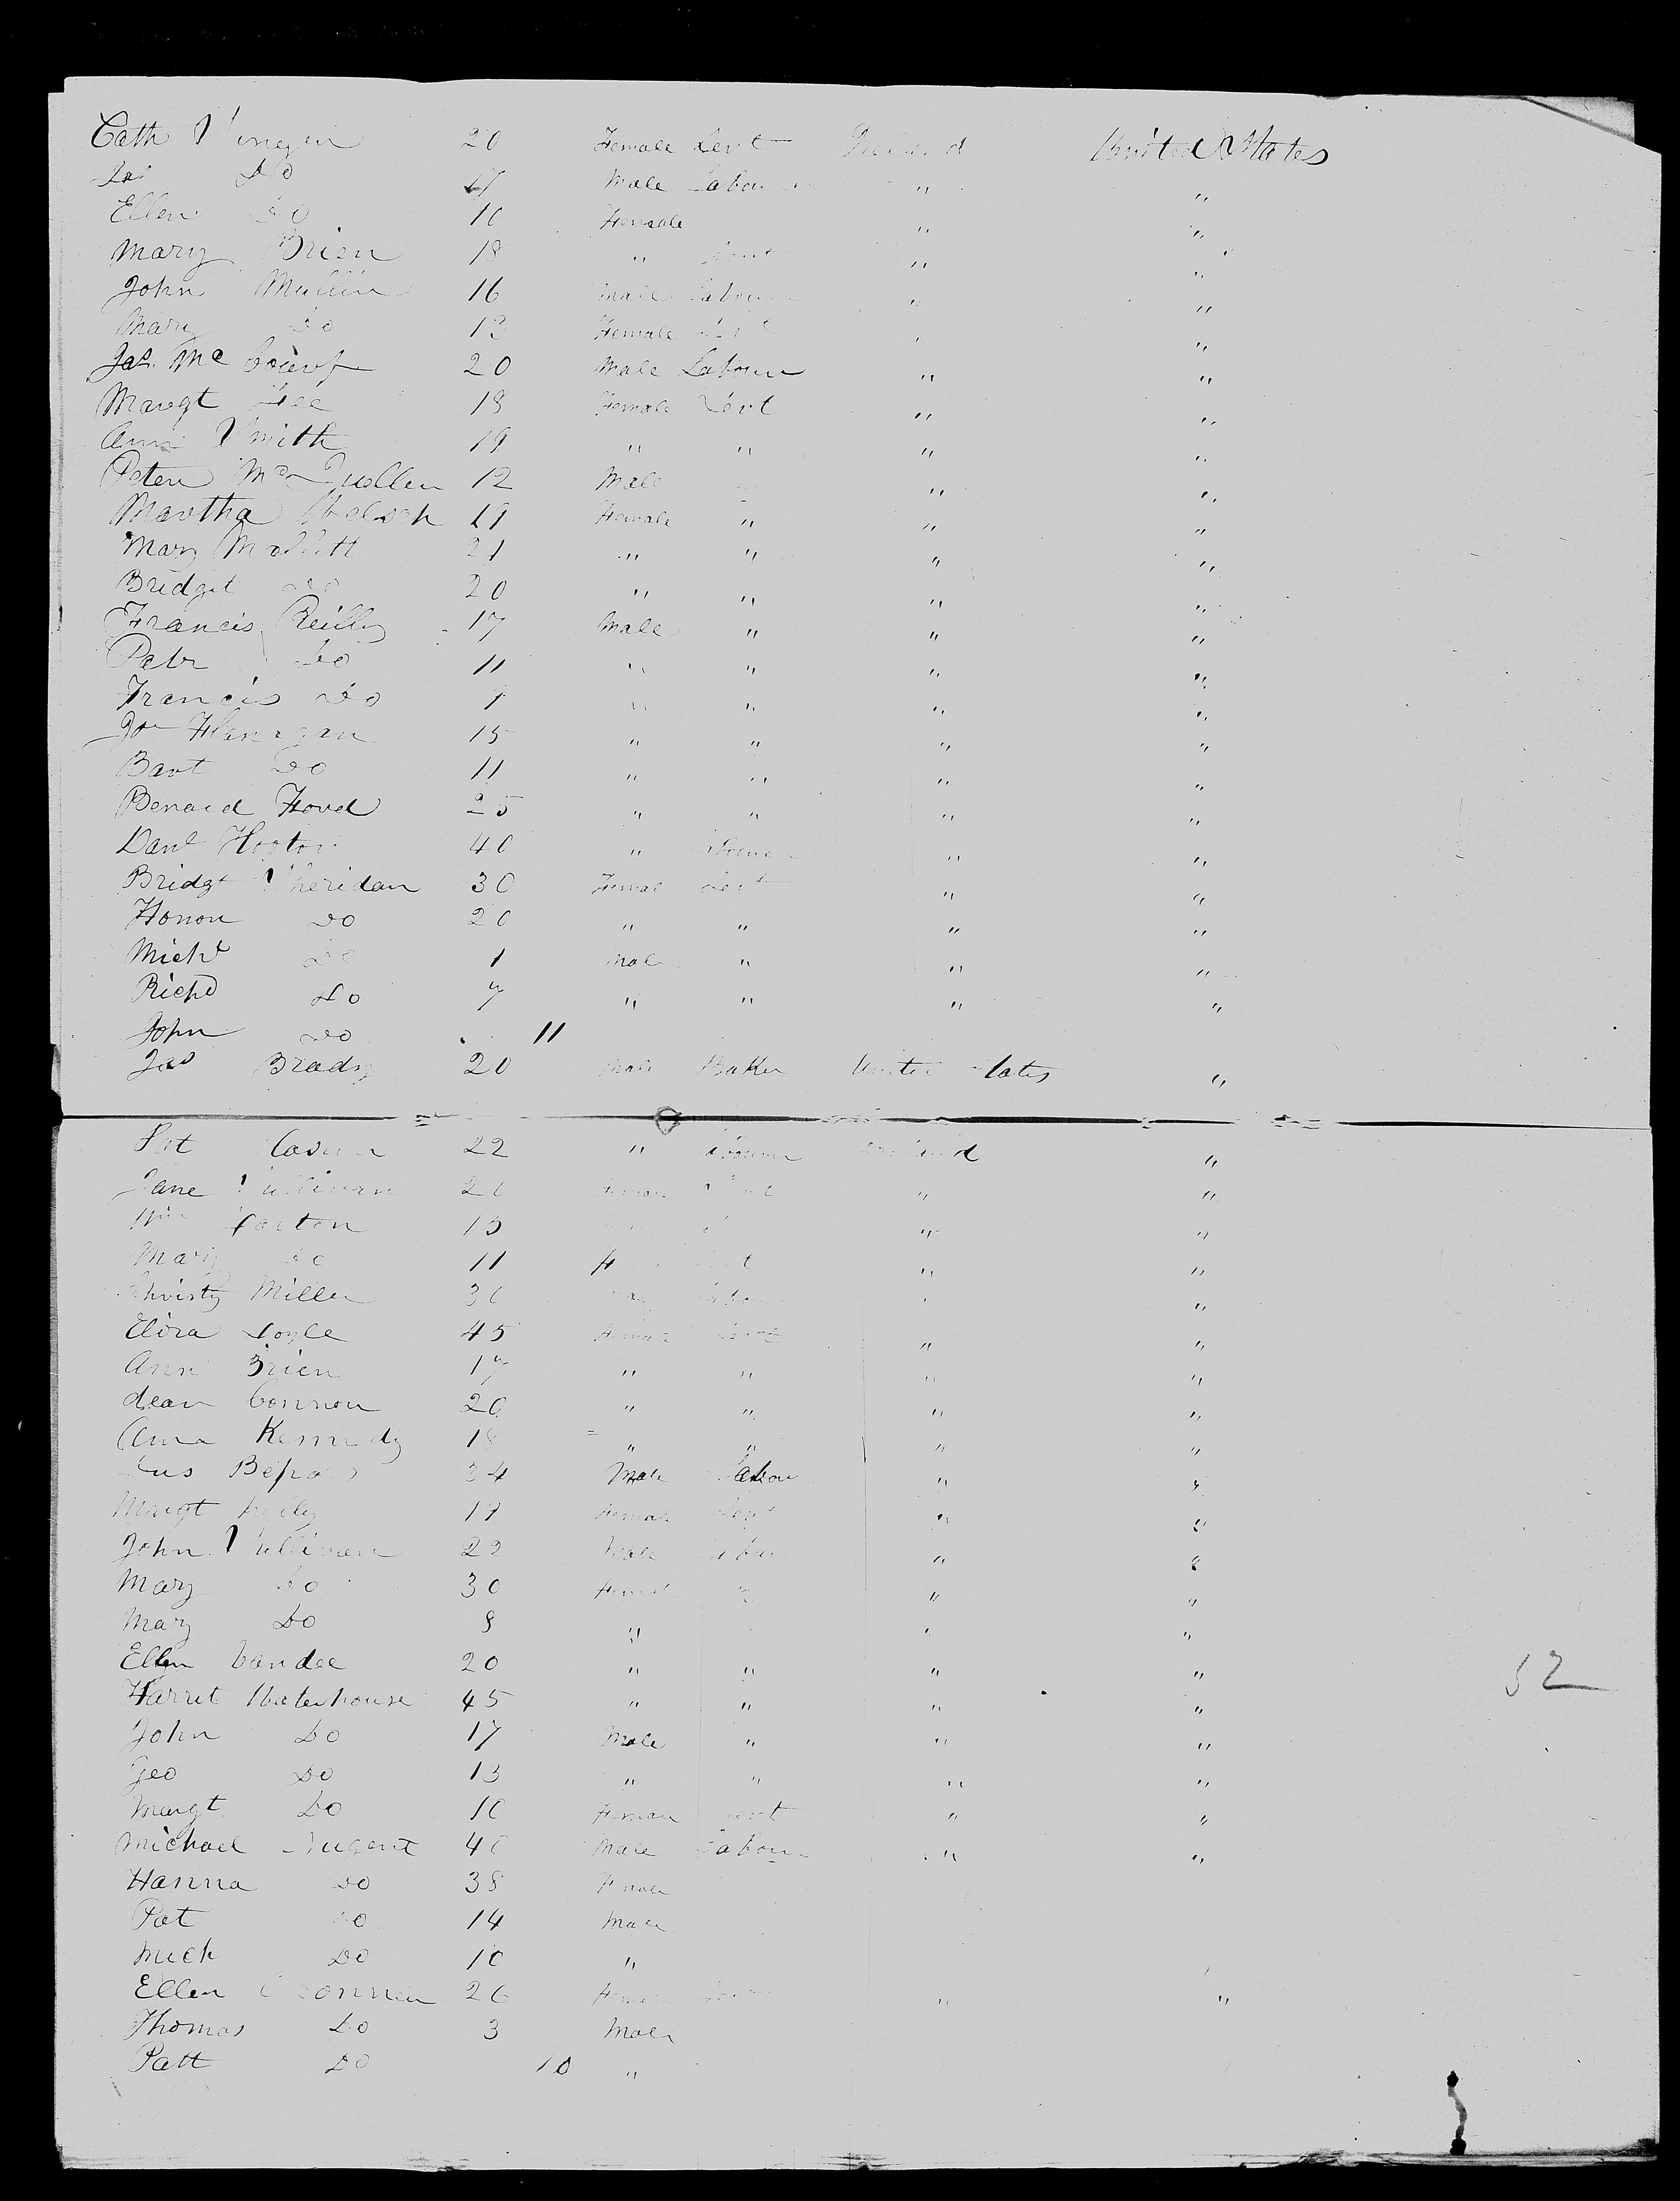 Cath 20 Female Servt Ireland United States
Jas Do 17 Male Labour " "
Ellen Do 10 Female " "
Mary Brien 18 " Servt " "
John Mullin 16 Male Labour " "
Mary Do 13 Female Servt " "
Jas Mc 20 Male Labour " "
Margt Lee 18 Female Servt " "
Ann Smith 19 " " " "
Peter McQuellen 12 Male " "
Martha Walsh 19 Female " " "
Mary 21 " " " "
Bridget Do 20 " " " "
Francis Reilly 17 Male " " "
Patr Do 11 " " " "
Francis Do 9 " " " "
Jon Flanagan 15 " " " "
Bart Do 11 " " " "
Benard 25 " " " "
Danl Horton 40 " Labourer " "
Bridgt Sheridan 30 Femal Servt " "
Honor Do 20 " " " "
Michl Do 1 Male " " "
Richd Do 7 " " " "
John Do 11
Jas Brady 20 Male Baker United States "
Pat 22 " Labourer Ireland "
Jane Sullivan 20 Female Servt " "
Wm 15 " "
Mary Do 11 F " "
Christy Miller 30 Male Labour " "
Eliza Doyle 45 Female Servt " "
Ann Brien 17 " " " "
Connor 20 " " " "
Ann Kennedy 18 " " " "
34 Male Labour " "
Margt 19 Female Servt " "
John Sullivan 22 Male Labour " "
Mary Do 30 Female " " "
Mary Do 8 " " "
Ellen 20 " " " "
Harriet Waterhouse 45 " " " "
52
John Do 17 Male " " "
Geo Do 13 " " " "
Margt Do 10 Female Servt " "
Michael Nugent 40 Male Labour " "
Hanna Do 38 Female
Pat Do 14 Male
Mich Do 10 "
Ellen OConnor 26 Female Servt " "
Thomas Do 3 Male
Patt Do 10 "